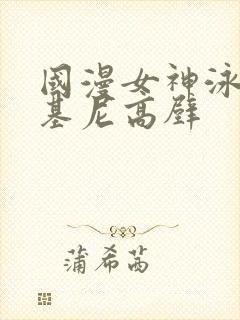 國漫女神泳
基尼高壁
蒲希茜